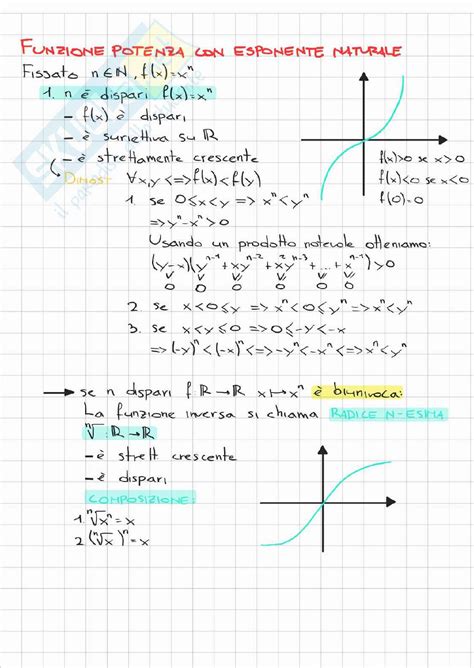 FUNZIONE POTENZA CON ESPONENTE NATURALE
Fissato n∈ℕ, f(x)=xⁿ
1. n è dispari f(x)=xⁿ
- f(x) è dispari
- è suriettiva su ℝ
- è strettamente crescente
f(x)>0 se x>0
f(x)<0 se x<0
f(0)=0
Dimos- ∀x,y <=> f(x)<f(y)
1. se 0≤x<y => xⁿ<yⁿ
=> yⁿ-xⁿ>0
Usando un prodotto notevole otteniamo:
(y-x)(yⁿ⁻¹+xyⁿ⁻²+x²yⁿ⁻³+...+xⁿ⁻¹)>0
0 0 0 0 0 0
2. se x<0≤y => xⁿ<0≤yⁿ => xⁿ<yⁿ
3. se x<y≤0 => 0≤-y<-x
=> (-y)ⁿ<(-x)ⁿ <=> -yⁿ<-xⁿ <=> xⁿ<yⁿ
→ se n dispari f ℝ→ℝ x↦xⁿ è biunivoca:
La funzione inversa si chiama RADICE N-ESIMA
ⁿ√ : ℝ→ℝ
- è strett crescente
- è dispari
COMPOSIZIONE:
1. ⁿ√xⁿ = x
2 (ⁿ√x)ⁿ = x